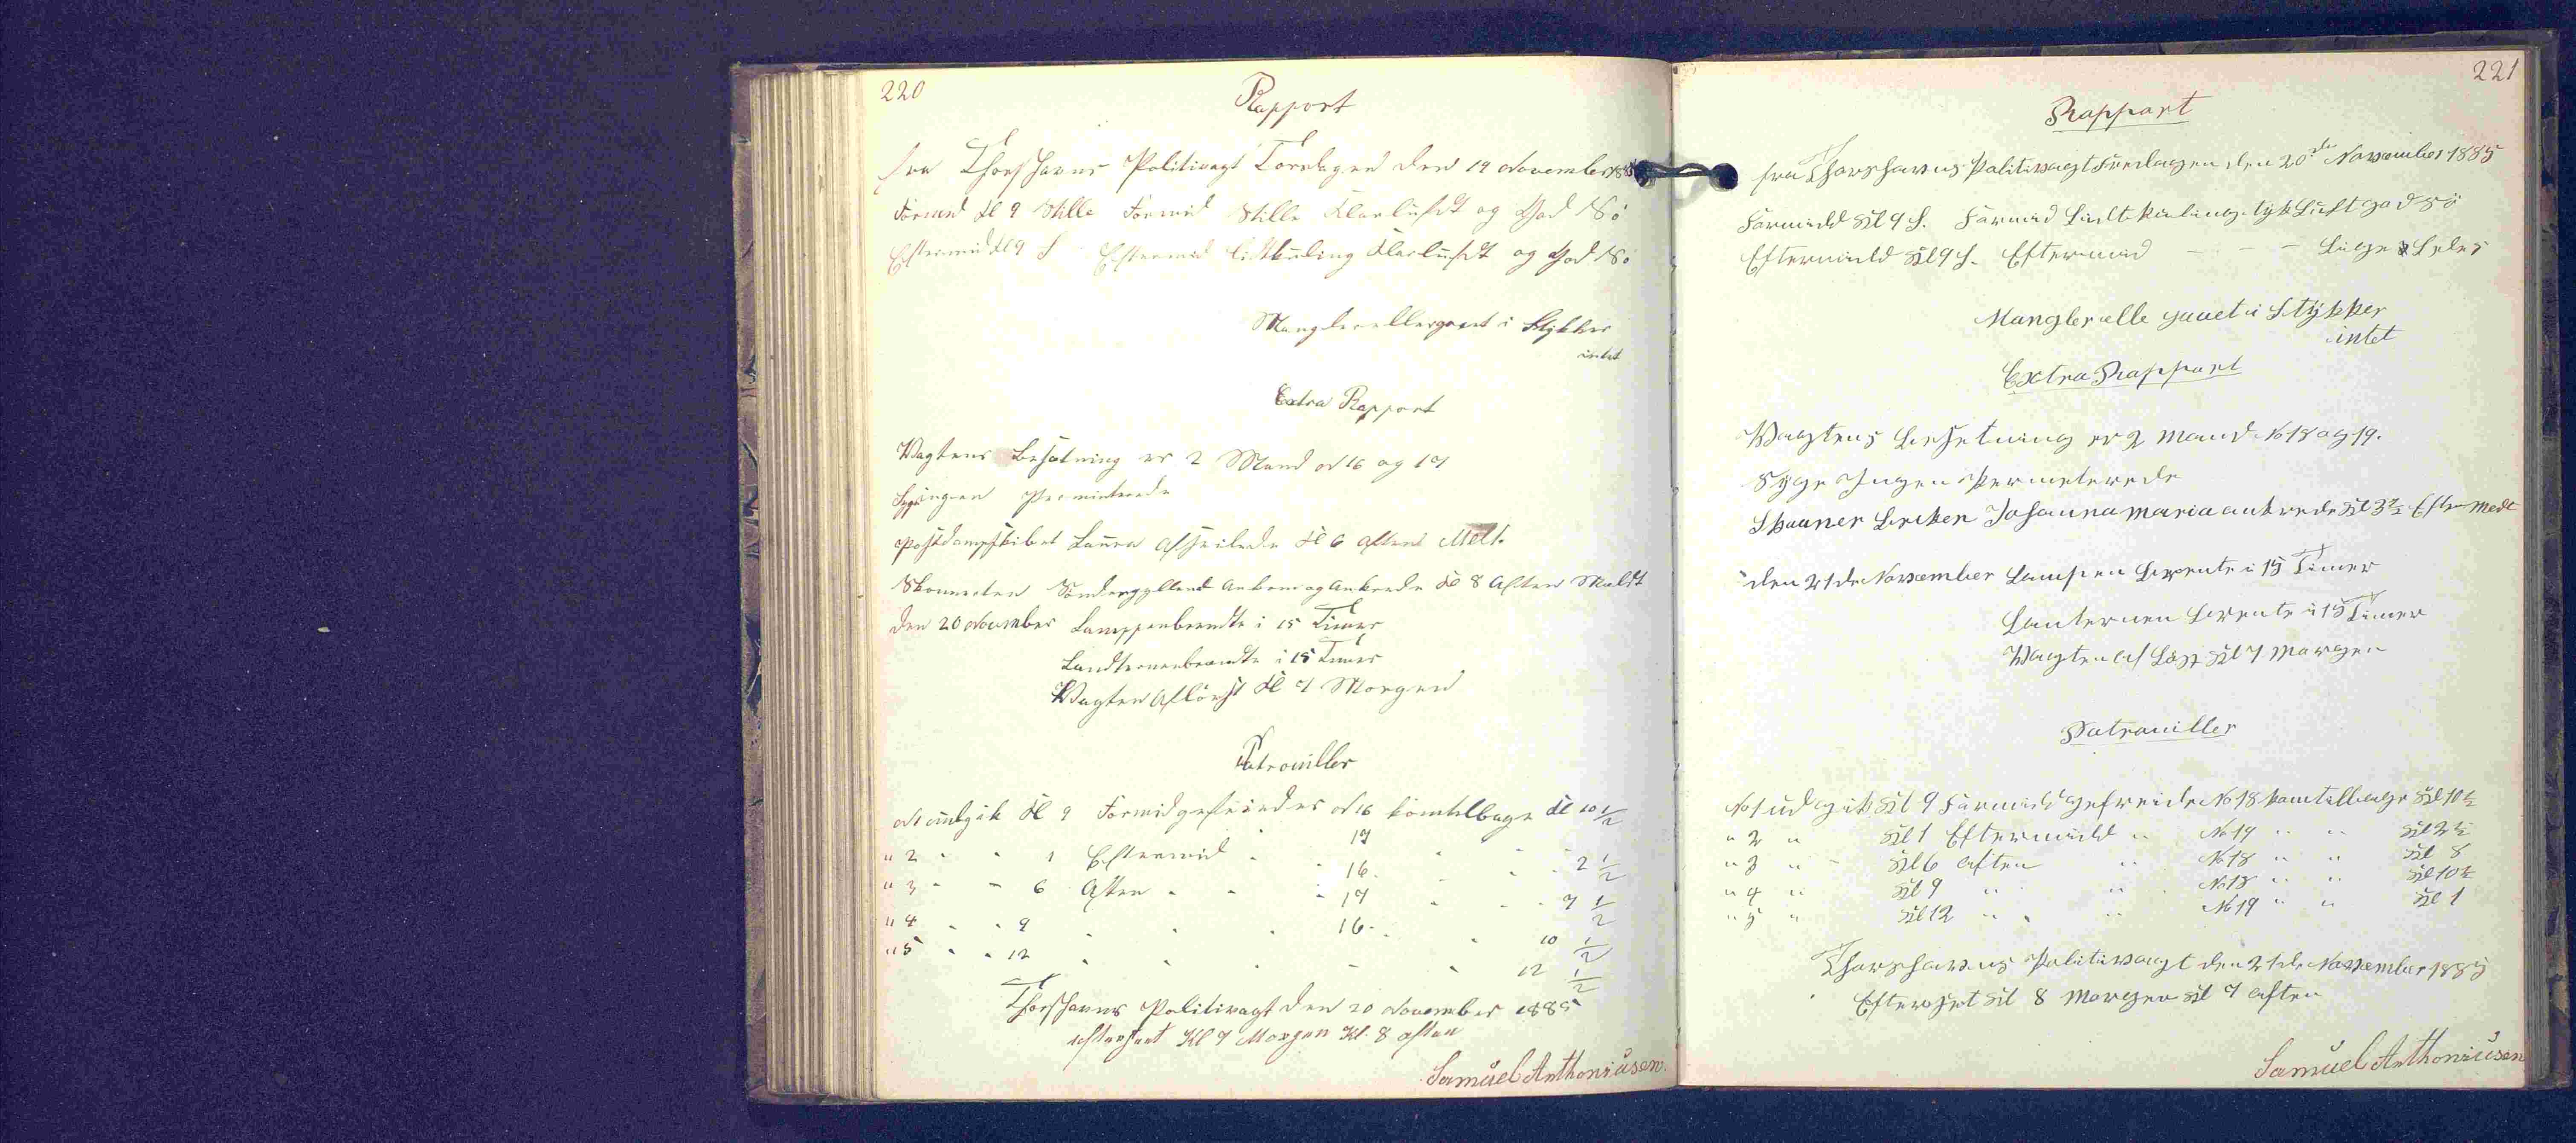 220
Rapport
fra Thorshavns Politivagt Torsdagen den 19 November 1885
Formd Kl 9 Stille Formid Stille Klarluft og God Sö
Eftermid Kl 9 S Eftermid lidtkuling Klarluft og God Sö
Mangler ellergaaet i Stykker
intet
Extra Rapport
Vagtens Besætning er 2 Mand No 16 og 17
Syge ingen Permiterede
Postdampskibet Laura afseilede Kl 6 Aften Melt.
Skonnerten Sönderjylland Ankom og Ankrede Kl 8 Aften Meldt
den 20 November Lamppenbrændte i 15 Timer
Landternenbrændte i 15 Timer
Vagten Aflöst Kl 7 Morgen
Patrouiller
No 1 udgik Kl 9 Formid gefreider No 16 komtilbage Kl 10 1/2
" 2 " " 1 Eftermid " 17 " " 2 1/2
" 3 " " 6 Aften " " 16 " " 7 1/2
" 4 " " 9 " " " 17 " " 10 1/2
" 5 " " 12 " " " 16 " " 12 1/2
Thorshavns Politivagt den 20 November 1885
efterseet Kl 7 Morgen Kl. 8 aften
Samuel Anthoniusen.
221
Rappart
fra Tharshavns Palitivagt Fredagen den 20de November 1885
Farmidd Kl 9 S. Farmid Lidt kuling tyk Luft god Sö
Eftermidd Kl 9 S. Eftermid - - - Lüge Ledes
Mangler elle gaaet i Stykker
intet
Extra Rappart
Vagtens Besetning er 2 Mand No 18 og 19.
Syge Ingen Permeterede
Skaaner Briken Johanna Maria ankrede Kl 3 1/2 Efter Medt
den 21de November Lampen brente i 15 Timer
Lanternen brente i 15 Timer
Vagten af Löst Kl 7 Margen
Patrauiller
No 1 ud gik Kl 9 Farmidd gefreide No 18 kamtillbage Kl 10 1/2
" 2 " Kl 1 Eftermidd " No 19 " " Kl 2 1/2
" 3 " Kl 6 aften " No 18 " " Kl 8
" 4 " Kl 9 " " No 18 " " Kl 10 1/2
" 5 " Kl 12 " " No 19 " " Kl 1
Tharshavns Palitivagt den 21de November 1885
Efterset Kl 8 Margen Kl 7 aften
Samuel Anthoniusen